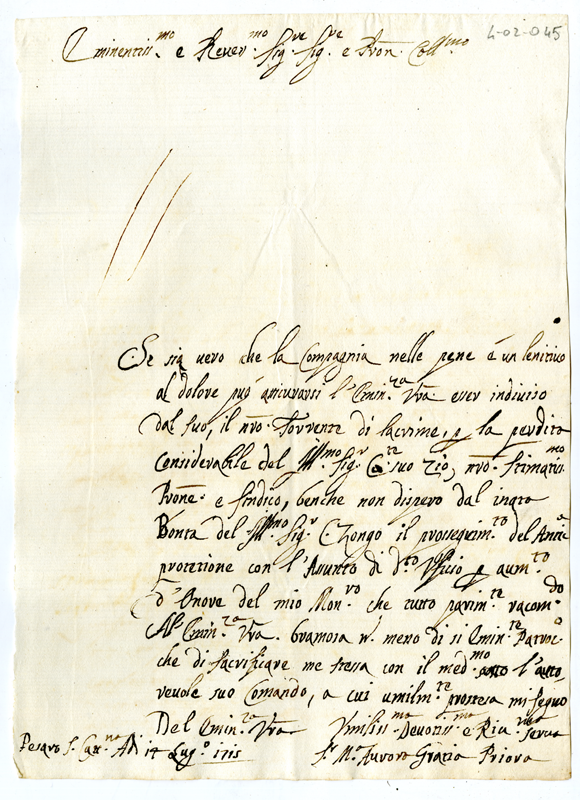 4-02-045
Eminentiss.mo e Rever.mo Sig.re Sig.re e Pron. Coll.mo
Se sia vero che la Compagnia nelle pene é un lenitivo
al dolore può assicurarsi l'Emin.za Vra esser indiviso
dal suo, il nro. Torrente di lacrime, p la perdita
considerabile del Ill.mo Sig.r Co:te suo Zio, nro. Stimatiss.mo
Prone. e Sindico, benche non dispero dal ingta
Bontà del Ill.mo Sig.r C. Zongo il proseguim.to del Antic.a
protetione con l'Assunto di d.to Ufficio p aum.to
d'Onore del mio Mon.ro che tutto parim.te racom.do
Al Emin.za Vra. bramosa n. meno di si Emin.te Patroc.o
che di sacrificare me stessa con il med.mo l'auto
revole suo Comãdo, a cui umilm.te prostesa mi segno
Del Emin.za Vra
Pesaro S. Catt.na Adi 14 Lug.o 1715
Umiliss.ma Devotis.ma e Riv. Serva
S.r M.a Aurora Gratia Priora